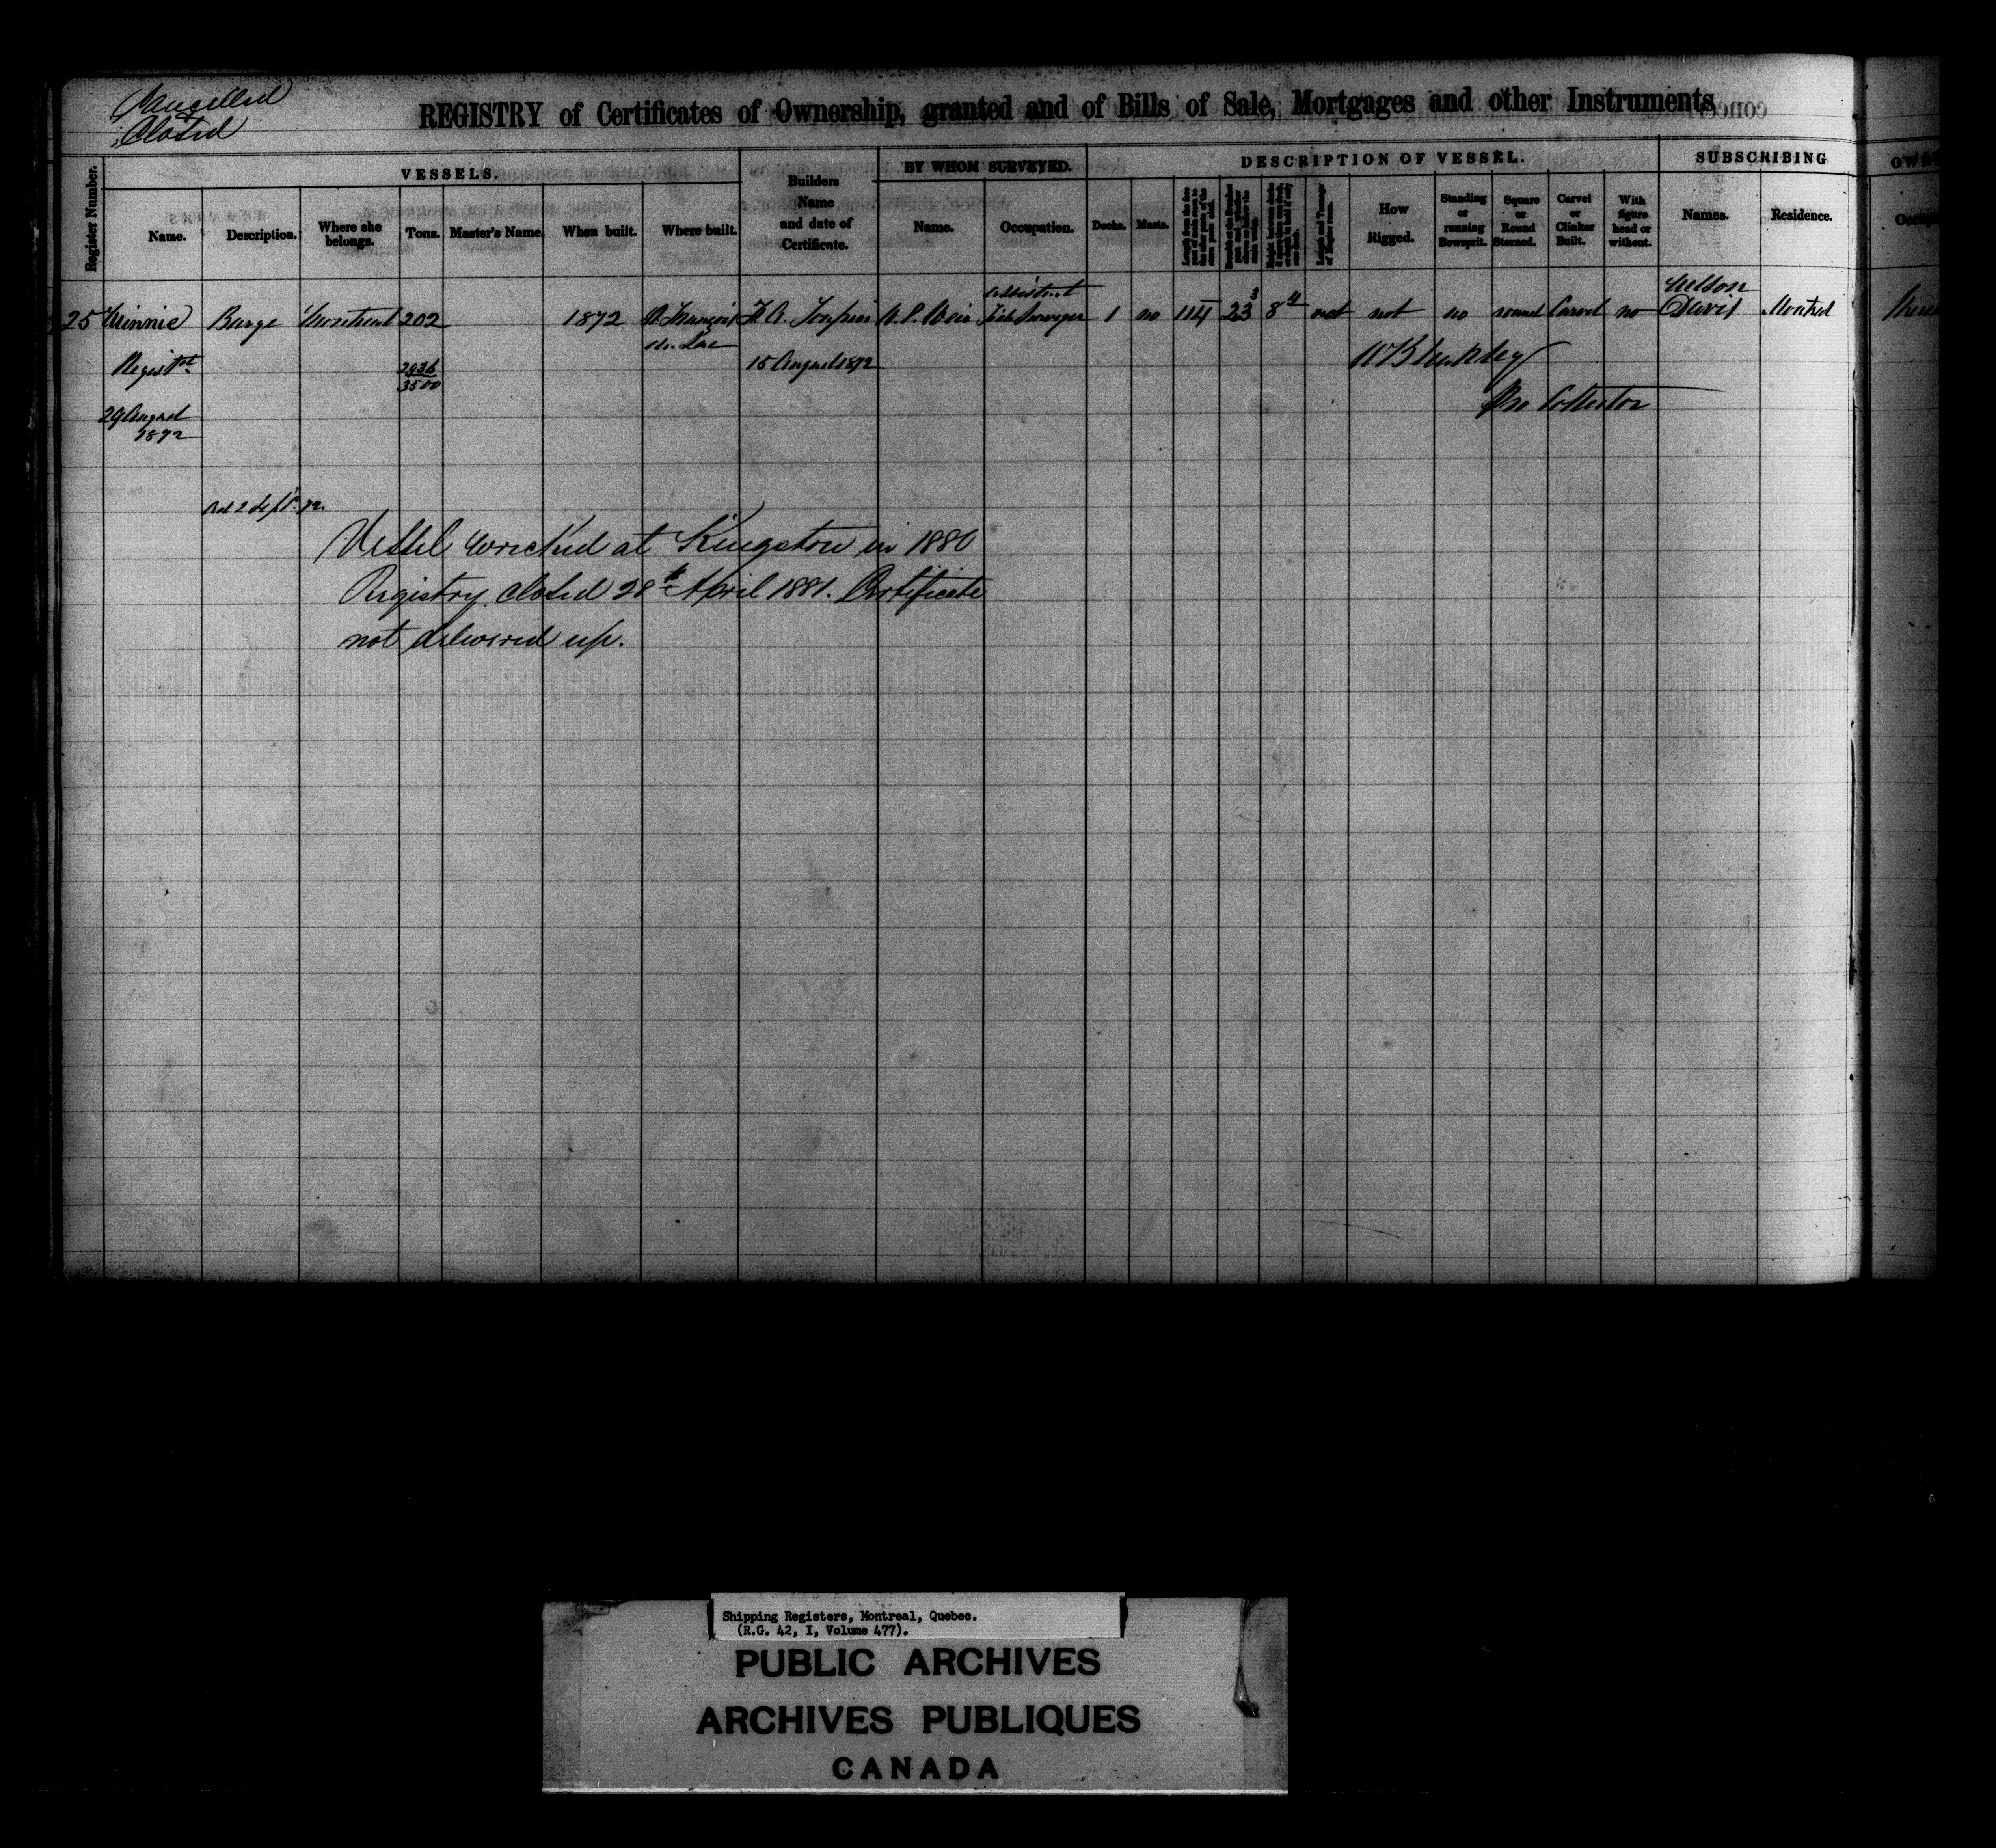 Cancelled
Closed
REGISTRY of Certificates of Ownership, granted and of Bills of Sale, Mortgages and other Instruments
VESSELS.
BY WHOM SURVEYED.
DESCRIPTION OF VESSEL.
SUBSCRIBING
Register Number.
Name.
Description.
Where she belongs.
Tons.
Master's Name.
When built.
Where built.
Builders Name and date of Certificate.
Name.
Occupation.
Decks.
Masts.
How Rigged.
Standing or running Bowsprit.
Square or Round Sterned.
Carvel or Clinker Built.
With figure head or without.
Names.
Residence.
25 Minnie Barge Montreal 202 1872 St. François du Lac
15 August 1872
Assistant
1 no 114 23 3 8 4 not not no round Carvel no
Nelson
David Montreal
Regist
2936
3500
29 August
1872
Collector
2 Sept. 72.
Vessel wrecked at Kingston in 1880
Registry closed 28th April 1881. Certificate
not delivered up.
Shipping Registers, Montreal, Quebec.
(R.G. 42, I, Volume 477).
PUBLIC ARCHIVES
ARCHIVES PUBLIQUES
CANADA